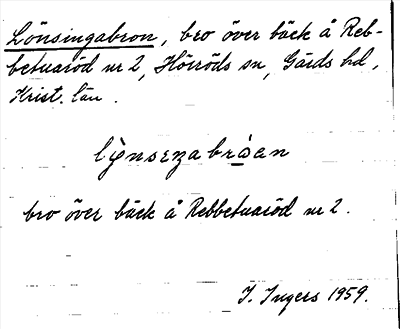 Lönsingabron, bro över bäck å Reb-
betuaröd nr 2, Hörröds sn, Gärds hd,
Krist. län.
bro över bäck å Rebbetuaröd nr 2.
I. Ingers 1959.